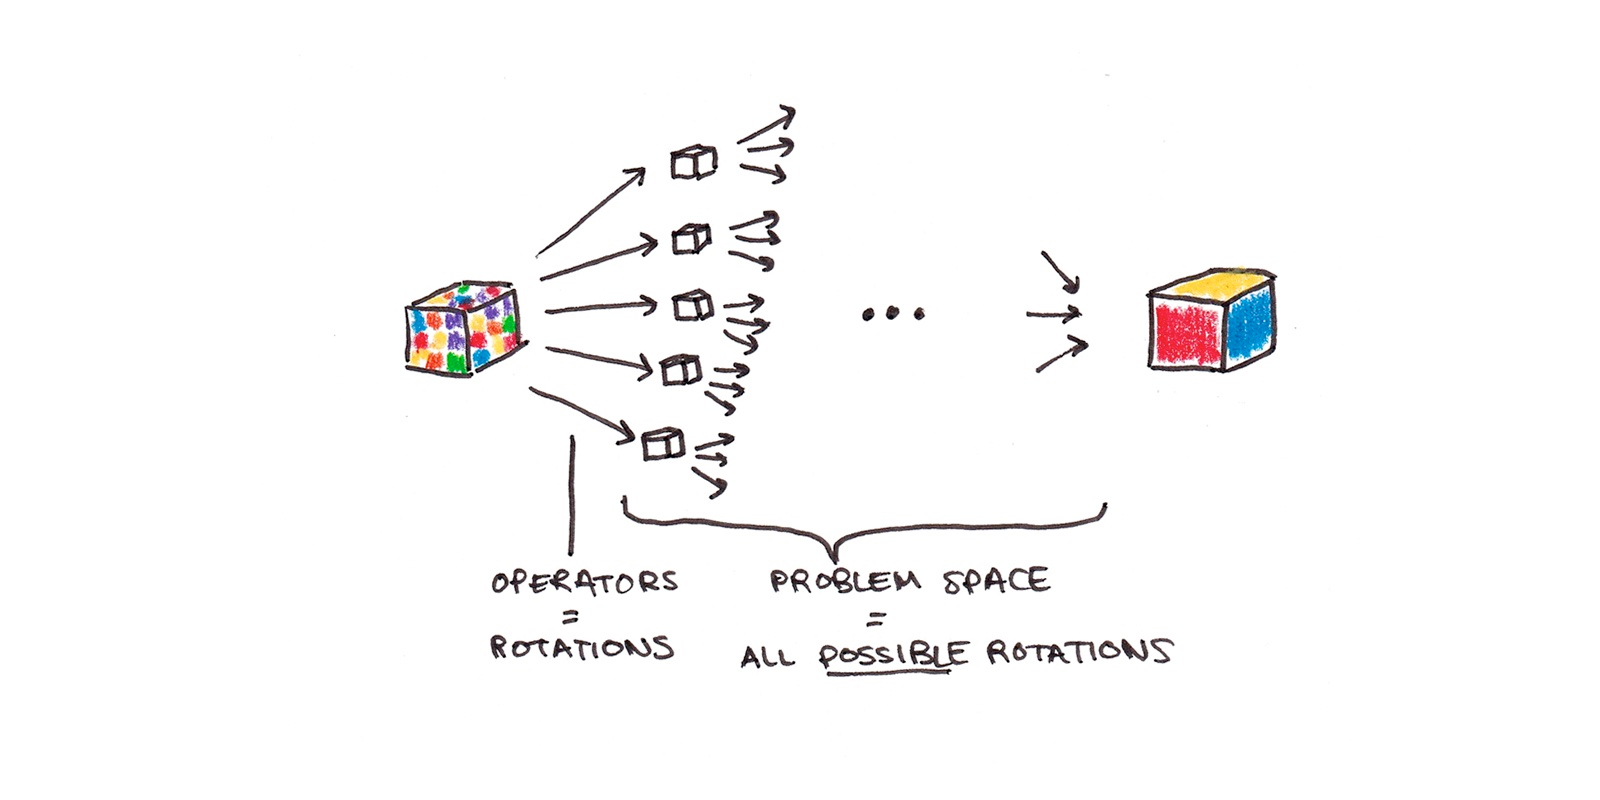 OPERATORS
=
ROTATIONS
PROBLEM SPACE
=
ALL POSSIBLE ROTATIONS